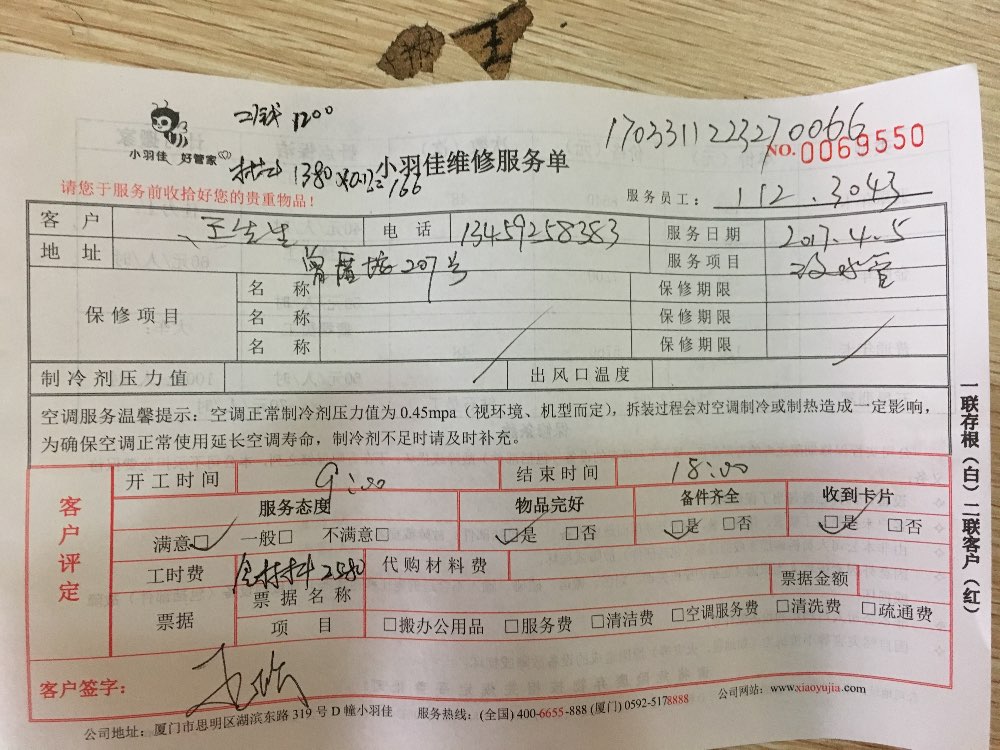 工钱 1200
170331122327 0066
小羽佳 好管家
材料 1380×0.12=166
小羽佳维修服务单
NO. 0069550
请您于服务前收拾好您的贵重物品！
服务员工： 112 . 3043
客 户 王先生 电 话 13459258383 服务日期 2017.4.5
地 址 曾厝垵207号 服务项目 改水管
保修项目
名 称 保修期限
名 称 保修期限
名 称 保修期限
制冷剂压力值 出风口温度
空调服务温馨提示：空调正常制冷剂压力值为 0.45mpa（视环境、机型而定），拆装过程会对空调制冷或制热造成一定影响，
为确保空调正常使用延长空调寿命，制冷剂不足时请及时补充。
客户评定
开工时间 9:00 结束时间 18:00
服务态度 物品完好 备件齐全 收到卡片
满意□ 一般□ 不满意□ □是 □否 □是 □否 □是 □否
工时费 包材料 2580 代购材料费
票据 票据名称 票据金额
项 目 □搬办公用品 □服务费 □清洁费 □空调服务费 □清洗费 □疏通费
客户签字：
公司地址：厦门市思明区湖滨东路 319 号 D 幢小羽佳 服务热线：(全国) 400-6655-888 (厦门) 0592-5178888 公司网站：www.xiaoyujia.com
一联存根（白）二联客户（红）